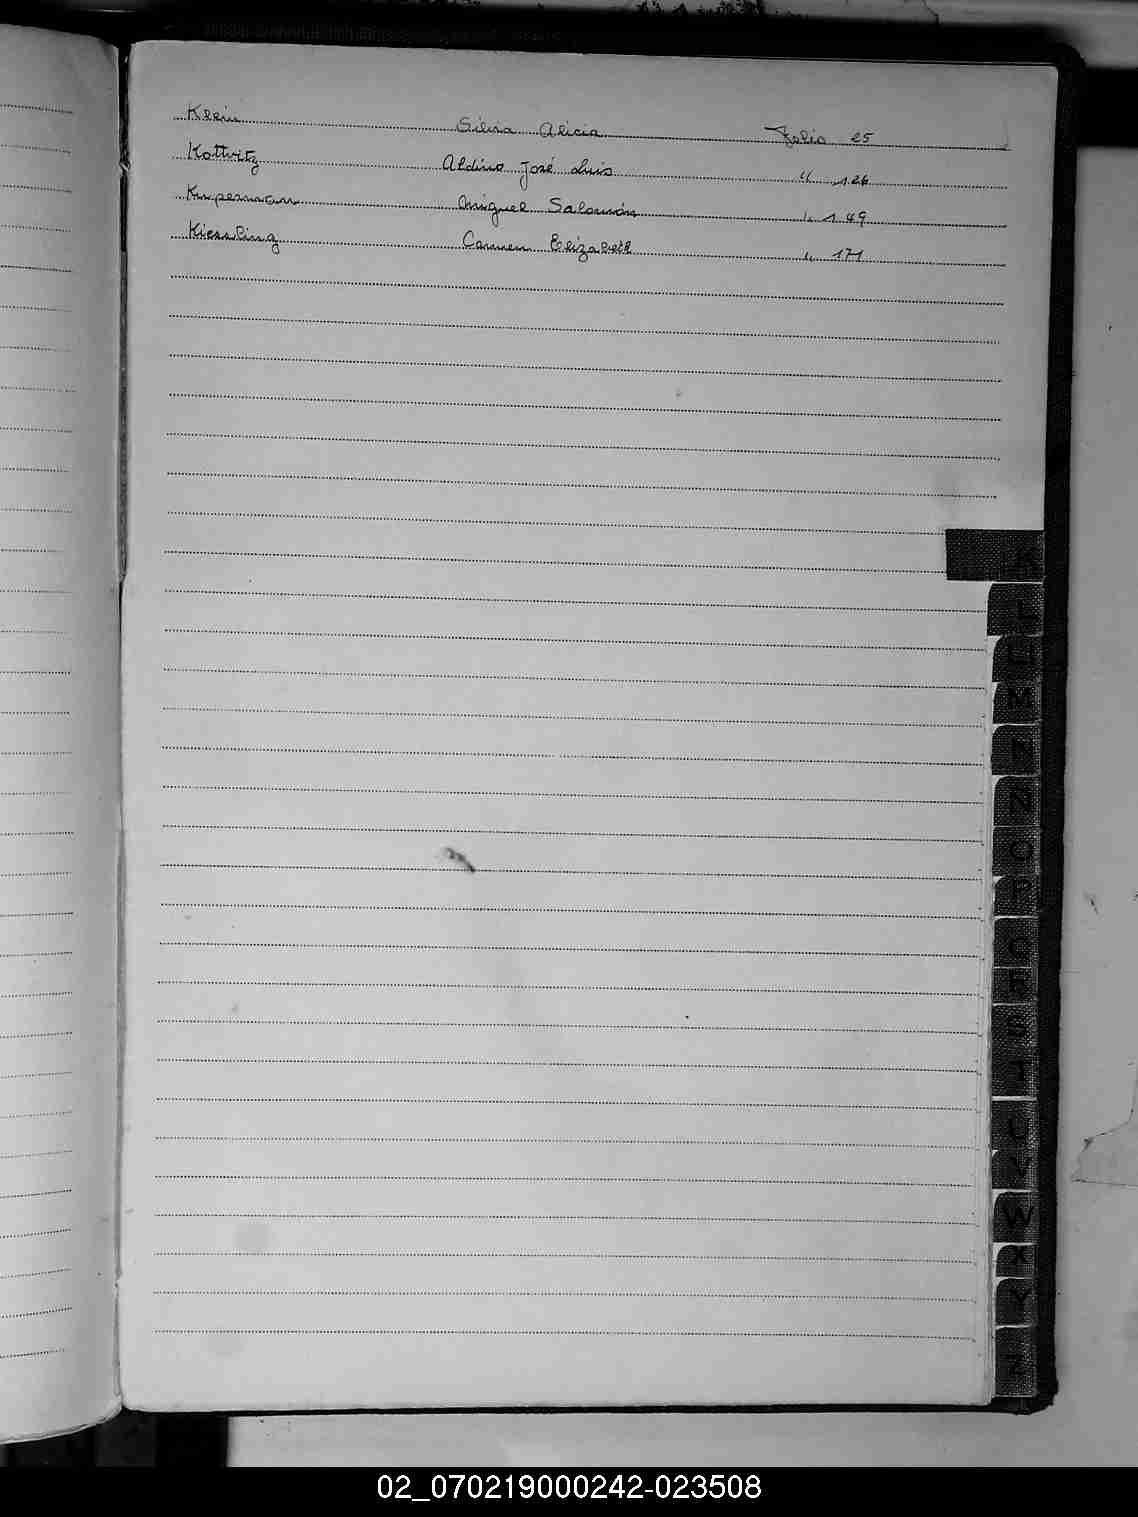 Klein Silvia Alicia Folio 25
Kottvitz Aldino José Luis " 126
Kupermann Miguel Salomón " 149
Kiessling Carmen Elizabeth " 171
K
L
M
N
Ñ
O
P
Q
R
S
T
U
V
W
X
Y
Z
02_070219000242-023508